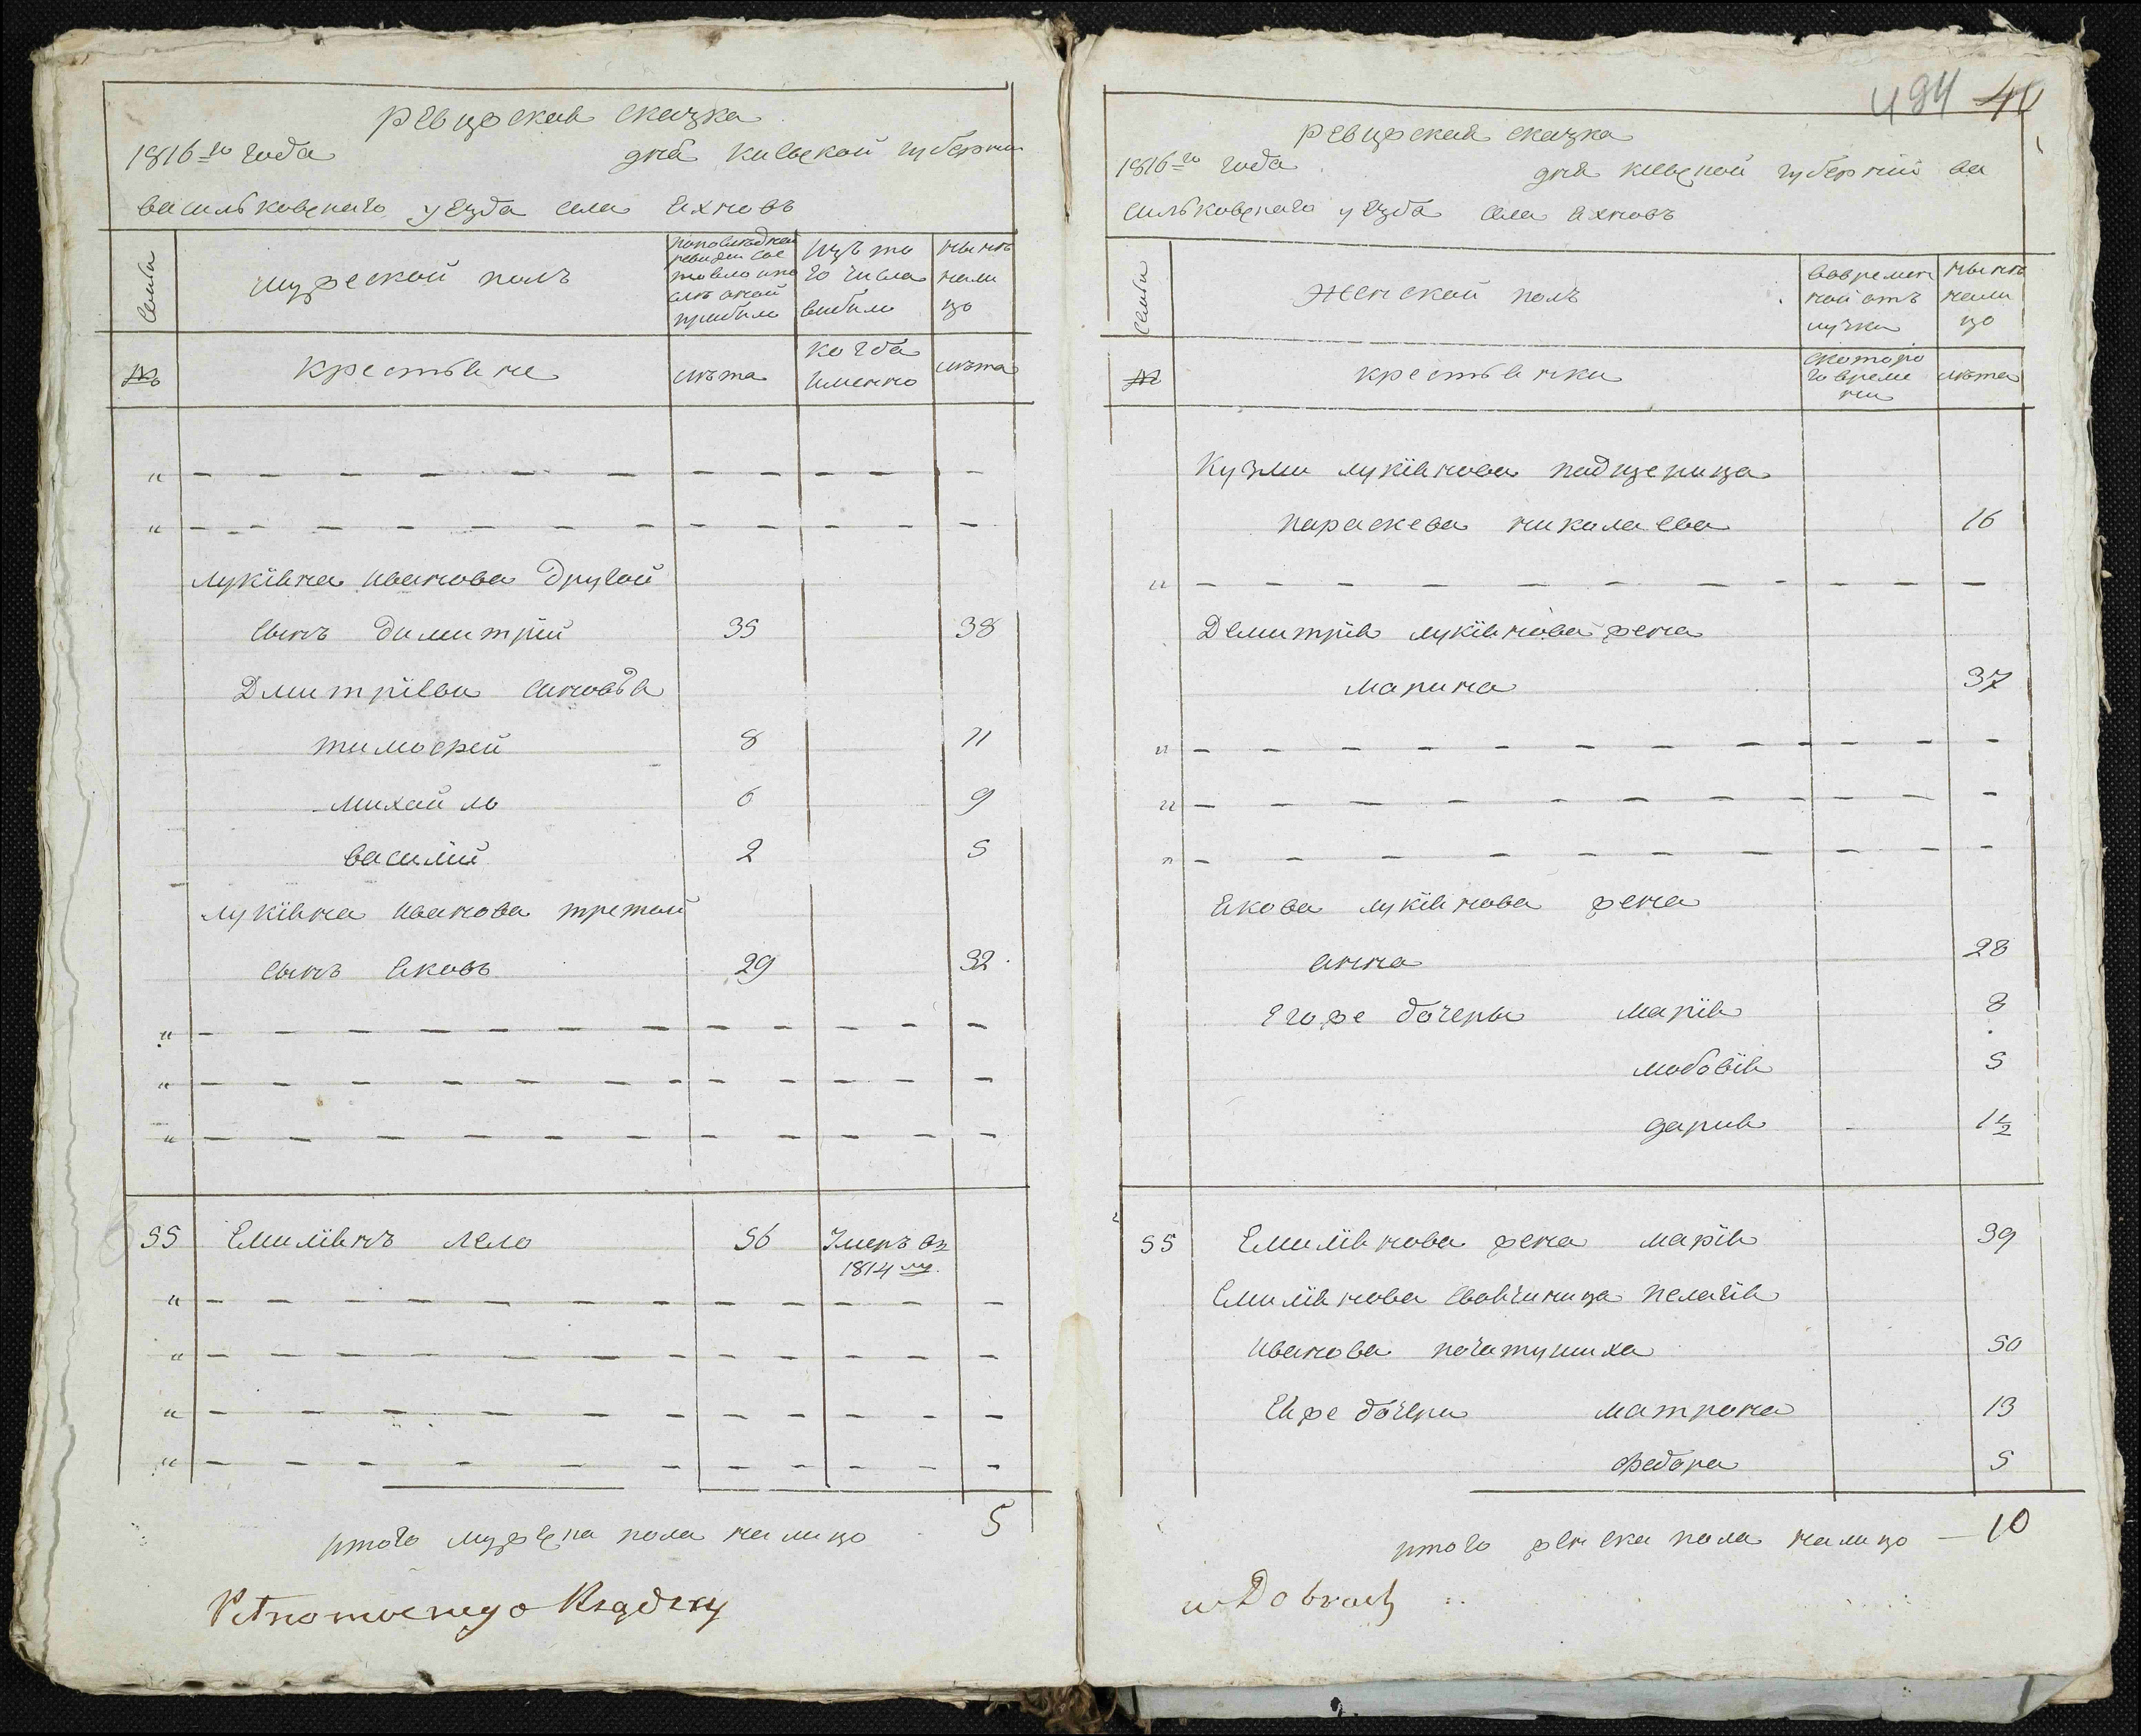 Ревизская сказка
1816-го года дня Киевской губернии
васильковскаго уезда села Яхновъ
Семьи
мужеской полъ
по последней ревизии состояло и после оной прибыло
изъ того числа выбыло
ныне на лицо
№
крестьяне
лета
когда именно
лета
" — — — — — — — — — — —
" — — — — — — — — — — —
лукіяна иванова другой
сынъ димитрій 35 38
Дмитріевы синовья
тимофей 8 11
михайло 6 9
василій 2 5
лукіяна иванова третий
сынъ яковъ 29 32
" — — — — — — — — — — —
" — — — — — — — — — — —
" — — — — — — — — — — —
55 Емиліянъ лело 56 Умеръ въ
1814 му
" — — — — — — — — — — —
" — — — — — — — — — — —
" — — — — — — — — — — —
" — — — — — — — — — — —
итого мужеска пола на лицо 5
494 40
Ревизская сказка
1816-го года дня киевской губерніи ва
сильковскаго уезда села яхновъ
Семьи
Женской полъ
во временной отлучки
ныне на лицо
№
крестьянки
с которого времени
лета
Кузми лукіянова падщерица
параскева николаева 16
" — — — — — — — — — — —
Дмитрія лукіянова жена
марина 37
" — — — — — — — — — — —
" — — — — — — — — — — —
" — — — — — — — — — — —
якова лукіянова жена
анна 28
Егоже дочеры марія 8
любовія 5
дария 1½
55 Емиліянова жена марія 39
Емиліянова своячиница пелагія
иванова 50
Еяже дочери матрона 13
федора 5
итого женска пола налицо — 10
w Dobrach